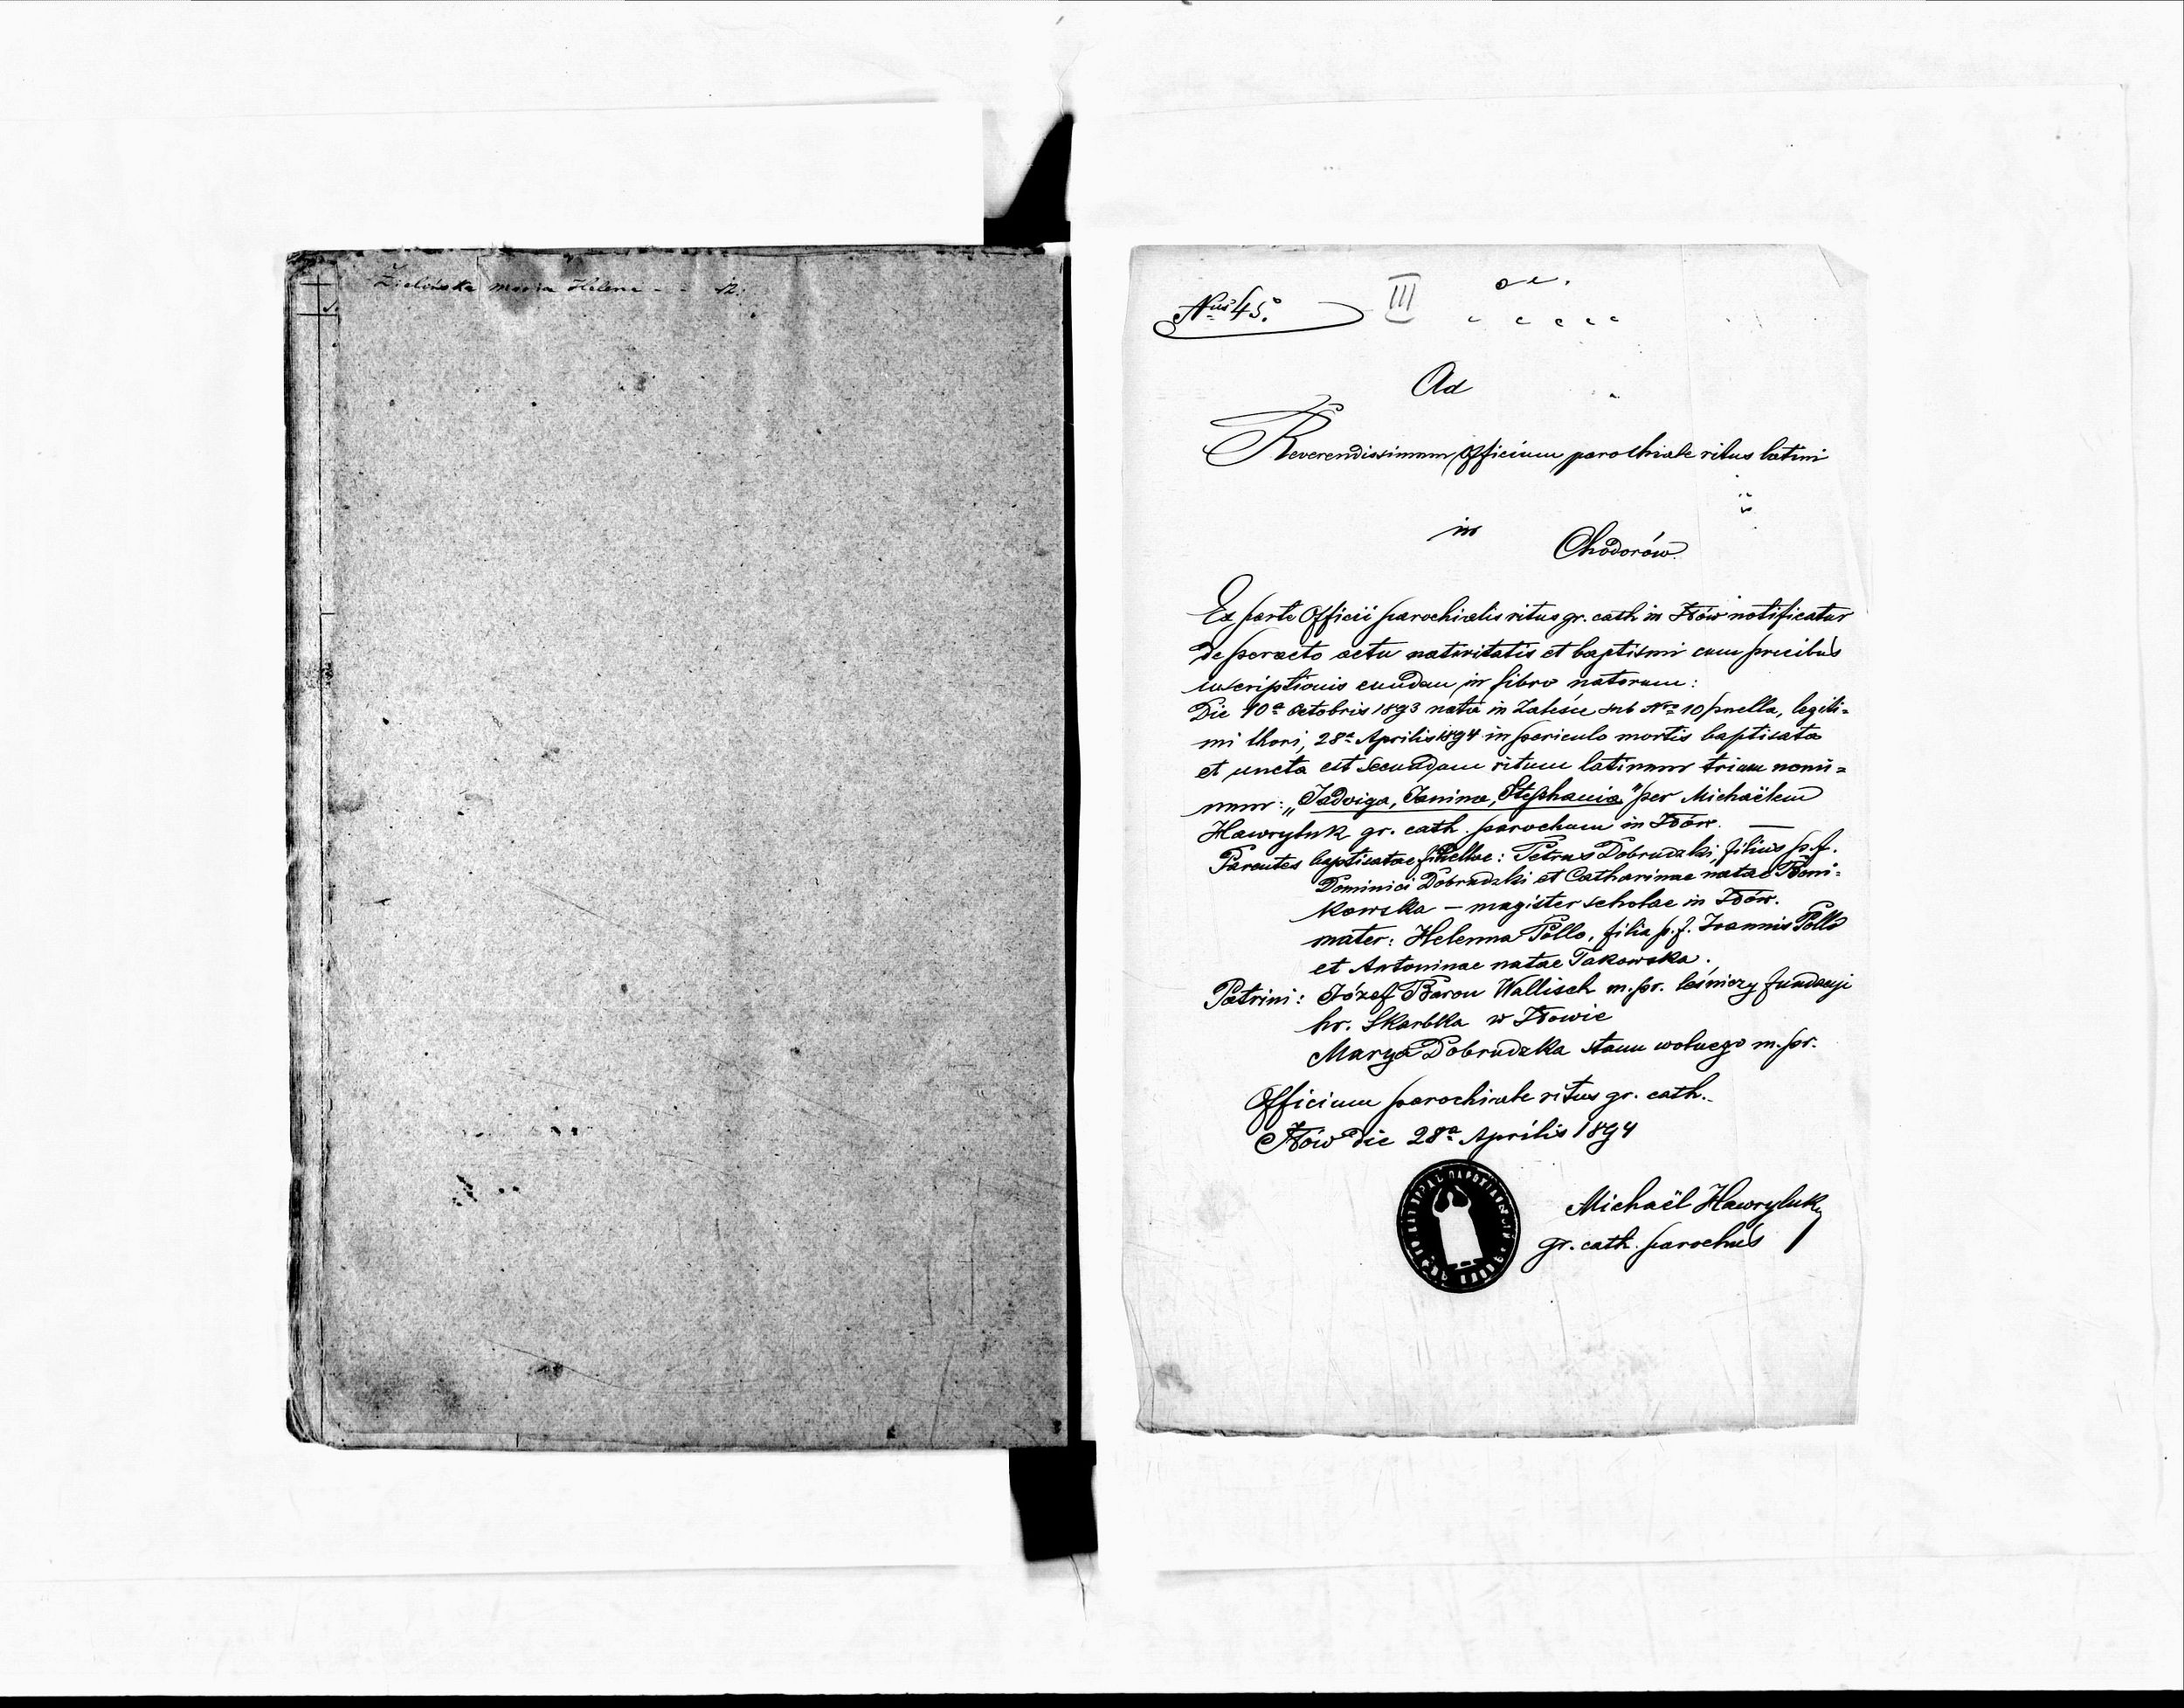 Zielińska Maria Helena - - 12.
Nus 45.
III
Ad
Reverendissimum Officium parochiale ritus latini
in
Chodorów
Ex parte Officii parochialis ritus gr. cath in Iłów notificatur
de peracto actu nativitatis et baptismi cum precibus
inscriptionis eiusdem in libro natorum:
Die 10a Octobris 1893 nata in Zalesie sub Nro 10 puella, legiti=
mi thori, 28a Aprilis 1894 in periculo mortis baptisata
et uncta est secundum ritum latinum trium nomi=
num: „Jadviga, Janina, Stephania" per Michaëlem
Hawryluk gr. cath. parochum in Iłów. —
Parentes baptisatae puellae: Petrus Dobrudzki, filius p.f.
Dominici Dobrudzki et Catharinae natae Boni=
kowska — magister scholae in Iłów.
mater: Helenna Pollo, filia p.f. Joannis Pollo
et Antoninae natae Takowska.
Patrini: Józef Baron Wallisch m.pr. leśniczy fundacyi
hr. Skarbka w Iłowie
Marya Dobrudzka stanu wolnego m.pr.
Officium parochiale ritus gr. cath.
Iłów die 28a Aprilis 1894
Michaël Hawryluk
gr. cath. parochus